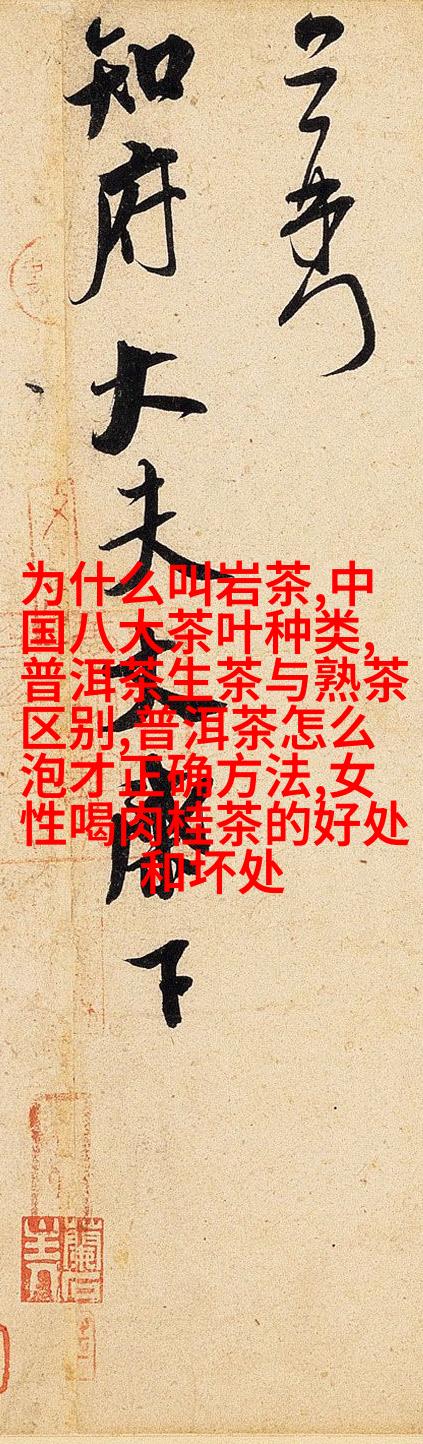 知府大夫
下
为什么叫岩茶,中
国八大茶叶种类,
普洱茶生茶与熟茶
区别,普洱茶怎么
泡才正确方法,女
性喝肉桂茶的好处
和坏处